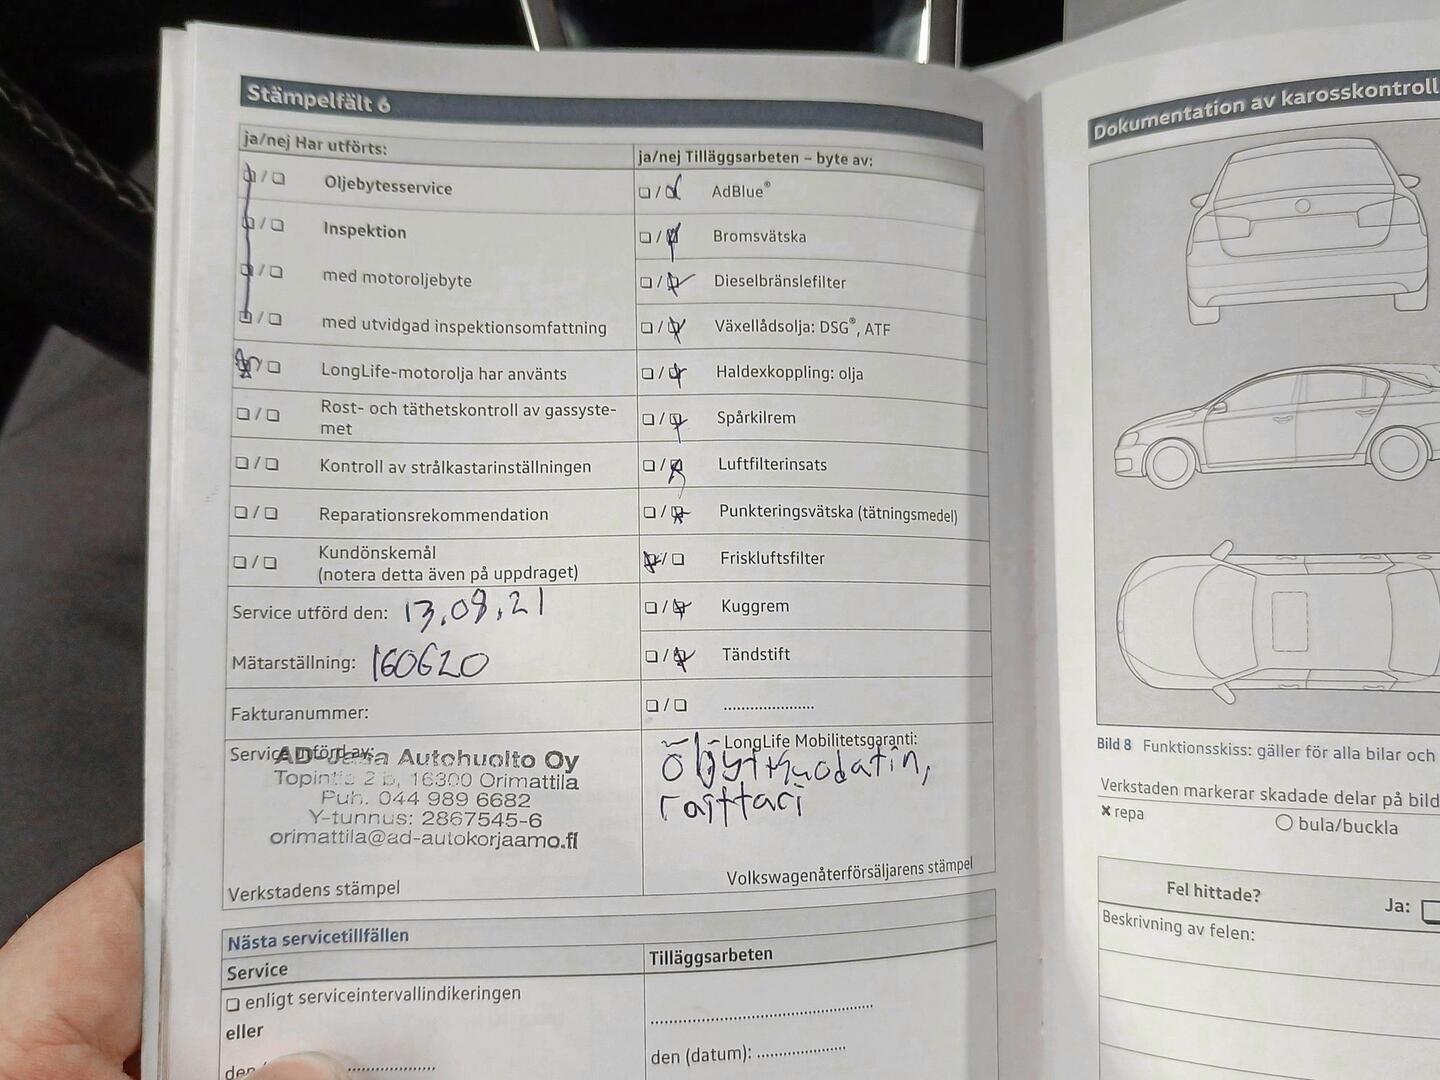 Stämpelfält 6
ja/nej Har utförts:
Oljebytesservice
Inspektion
med motoroljebyte
med utvidgad inspektionsomfattning
LongLife-motorolja har använts
Rost- och täthetskontroll av gassyste-
met
Kontroll av strålkastarinställningen
Reparationsrekommendation
Kundönskemål
(notera detta även på uppdraget)
Service utförd den: 13.08.21
Mätarställning: 160620
Fakturanummer:
Service utförd av:
AD- Autohuolto Oy
2 b, 16300 Orimattila
Puh. 044 989 6682
Y-tunnus: 2867545-6
orimattila@ad-autokorjaamo.fi
Verkstadens stämpel
ja/nej Tilläggsarbeten – byte av:
AdBlue®
Bromsvätska
Dieselbränslefilter
Växellådsolja: DSG®, ATF
Haldexkoppling: olja
Spårkilrem
Luftfilterinsats
Punkteringsvätska (tätningsmedel)
Friskluftsfilter
Kuggrem
Tändstift
....................
LongLife Mobilitetsgaranti:
raittari
Volkswagenåterförsäljarens stämpel
Nästa servicetillfällen
Service
enligt serviceintervallindikeringen
eller
Tilläggsarbeten
den (datum): ....................
Dokumentation av karosskontroll
Bild 8 Funktionsskiss: gäller för alla bilar och
Verkstaden markerar skadade delar på bild
repa
bula/buckla
Fel hittade?
Ja:
Beskrivning av felen: